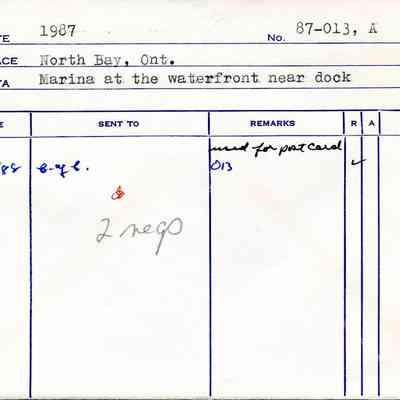 TE 1987 No. 87-013, A
ACE North Bay, Ont.
TA Marina at the waterfront near dock
E SENT TO REMARKS R A
used for postcard
/88 013 ✓
2 negs